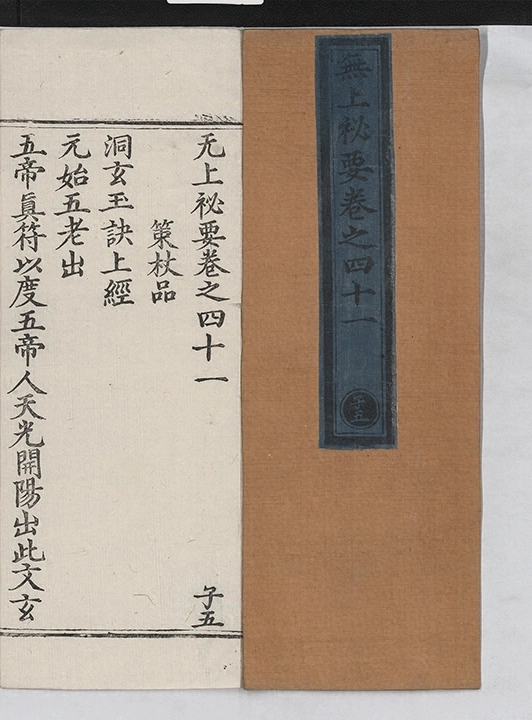 無上祕要卷之四十一
子五
无上祕要卷之四十一
子五
策杖品
洞玄玉訣上經
元始五老出
五帝眞符以度五帝人天光開陽出此文玄